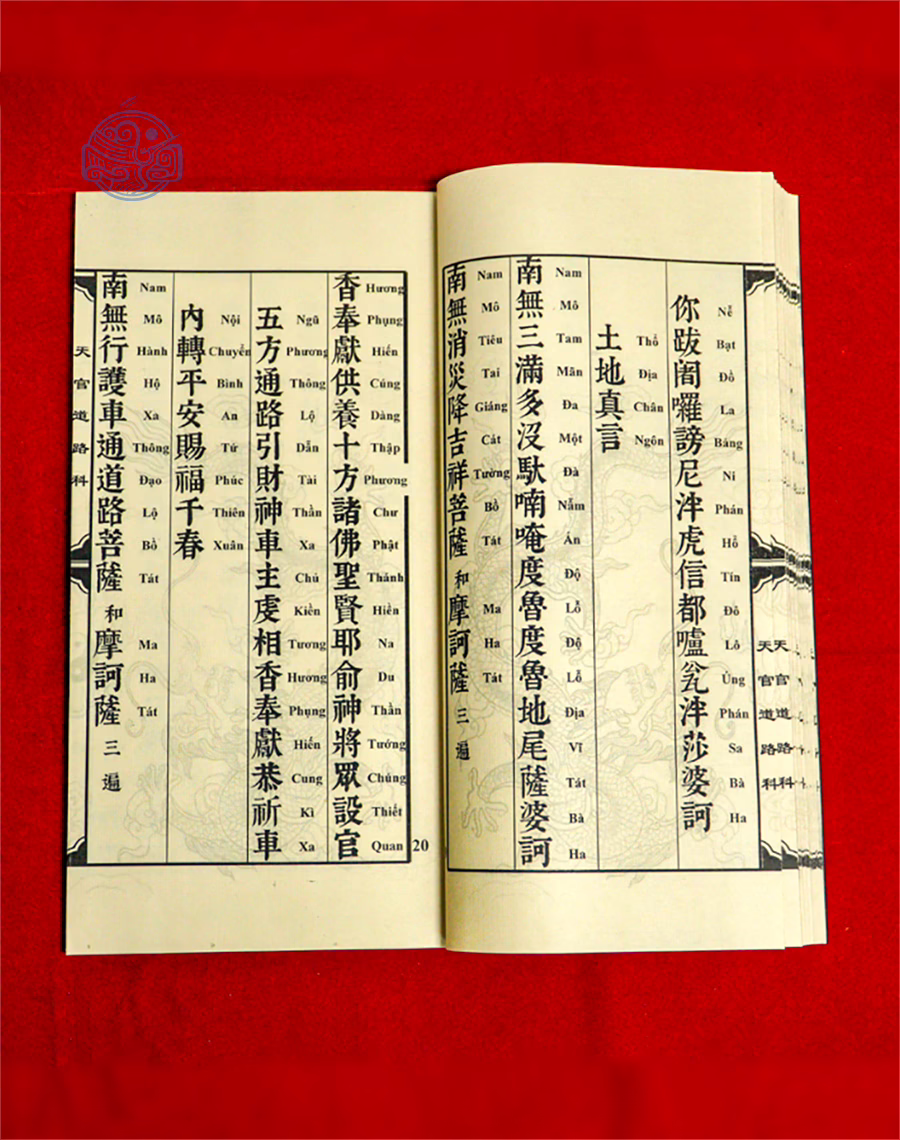 你跋闍囉謗尼泮虎信都嚧瓮泮莎婆訶
Nễ Bạt Đồ La Báng Ni Phán Hồ Tín Đô Lô Ủng Phán Sa Bà Ha
土地真言
Thổ Địa Chân Ngôn
南無三滿多沒馱喃唵度魯度魯地尾薩婆訶
Nam Mô Tam Mãn Đa Một Đà Nẫm Án Độ Lỗ Độ Lỗ Địa Vĩ Tát Bà Ha
南無消災降吉祥菩薩和摩訶薩三遍
Nam Mô Tiêu Tai Giáng Cát Tường Bồ Tát Ma Ha Tát
天官道路科
天官道路科
20
香奉獻供養十方諸佛聖賢耶俞神將眾設官
Hương Phụng Hiến Cúng Dàng Thập Phương Chư Phật Thánh Hiền Na Du Thần Tướng Chúng Thiết Quan
五方通路引財神車主虔相香奉獻恭祈車
Ngũ Phương Thông Lộ Dẫn Tài Thần Xa Chủ Kiền Tương Hương Phụng Hiến Cung Kì Xa
內轉平安賜福千春
Nội Chuyển Bình An Tứ Phúc Thiên Xuân
南無行護車通道路菩薩和摩訶薩三遍
Nam Mô Hành Hộ Xa Thông Đạo Lộ Bồ Tát Ma Ha Tát
天官道路科